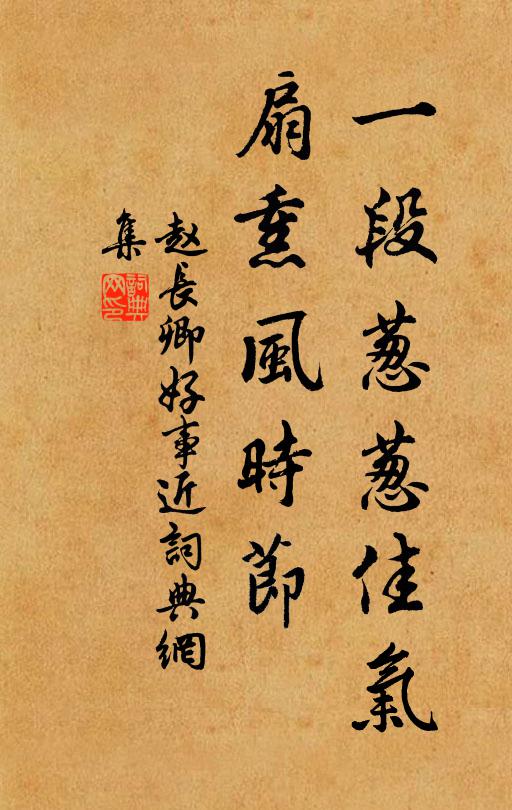 一段葱葱佳氣
扇熏風時節
赵長卿好事近詞典網
集
詞典
网印